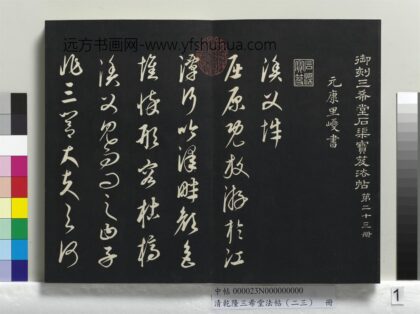 远方书画网-www.yfshuhua.com
御刻三希堂石渠寶笈法帖 第二十三冊
元康里巎書
石渠寶笈
漁父辭
屈原既放游於江
潭行吟澤畔顏色
憔悴形容枯槁
漁父見而問之曰子
非三閭大夫与何
中帖 000023N000000000
清乾隆三希堂法帖(二三) 冊
1